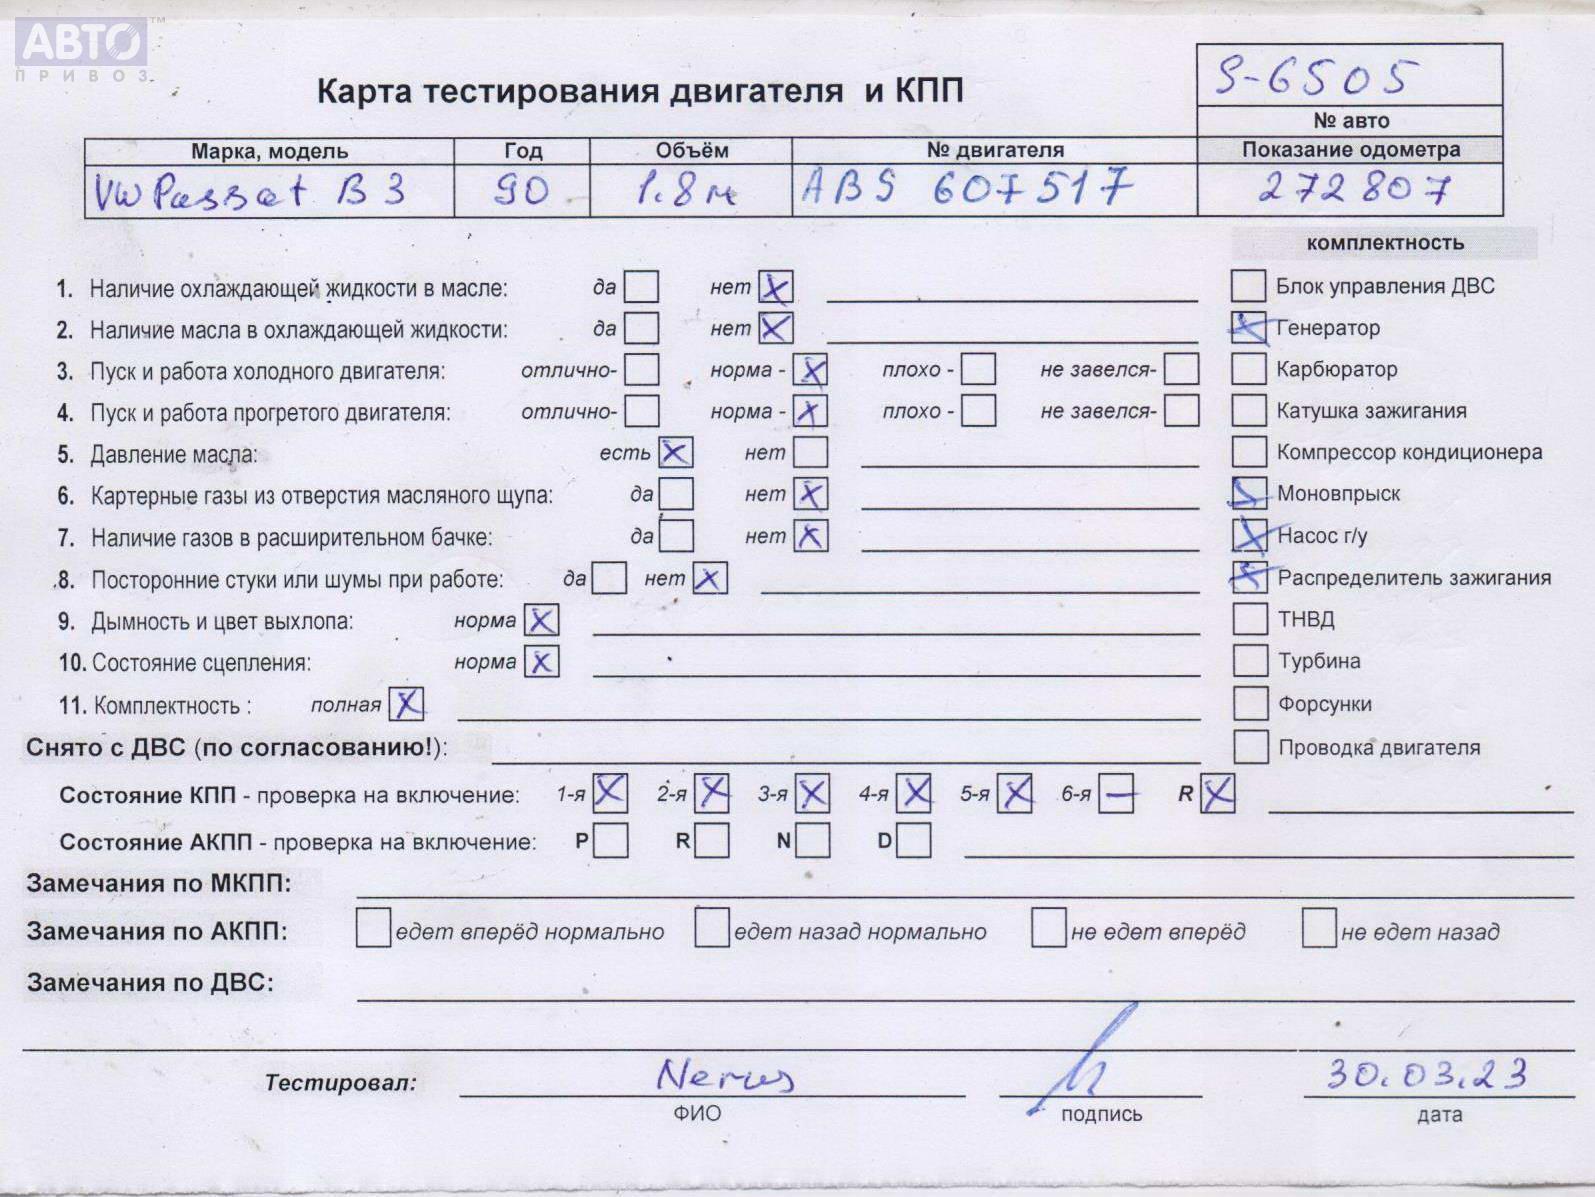 АВТО ™
ПРИВОЗ
S-6505
Карта тестирования двигателя и КПП
№ авто
Марка, модель Год Объём № двигателя Показание одометра
VW Passat B3 90 1.8м ABS 607517 272807
комплектность
1. Наличие охлаждающей жидкости в масле: да нет X Блок управления ДВС
2. Наличие масла в охлаждающей жидкости: да нет X X Генератор
3. Пуск и работа холодного двигателя: отлично- норма - X плохо - не завелся- Карбюратор
4. Пуск и работа прогретого двигателя: отлично- норма - X плохо - не завелся- Катушка зажигания
5. Давление масла: есть X нет Компрессор кондиционера
6. Картерные газы из отверстия масляного щупа: да нет X X Моновпрыск
7. Наличие газов в расширительном бачке: да нет X X Насос г/у
8. Посторонние стуки или шумы при работе: да нет X X Распределитель зажигания
9. Дымность и цвет выхлопа: норма X ТНВД
10. Состояние сцепления: норма X Турбина
11. Комплектность : полная X Форсунки
Снято с ДВС (по согласованию!): Проводка двигателя
Состояние КПП - проверка на включение: 1-я X 2-я X 3-я X 4-я X 5-я X 6-я — R X
Состояние АКПП - проверка на включение: P R N D
Замечания по МКПП:
Замечания по АКПП: едет вперёд нормально едет назад нормально не едет вперёд не едет назад
Замечания по ДВС:
Тестировал: 30.03.23
ФИО подпись дата